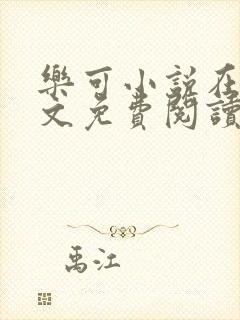 樂可小説在
文免費閱讀
禹江